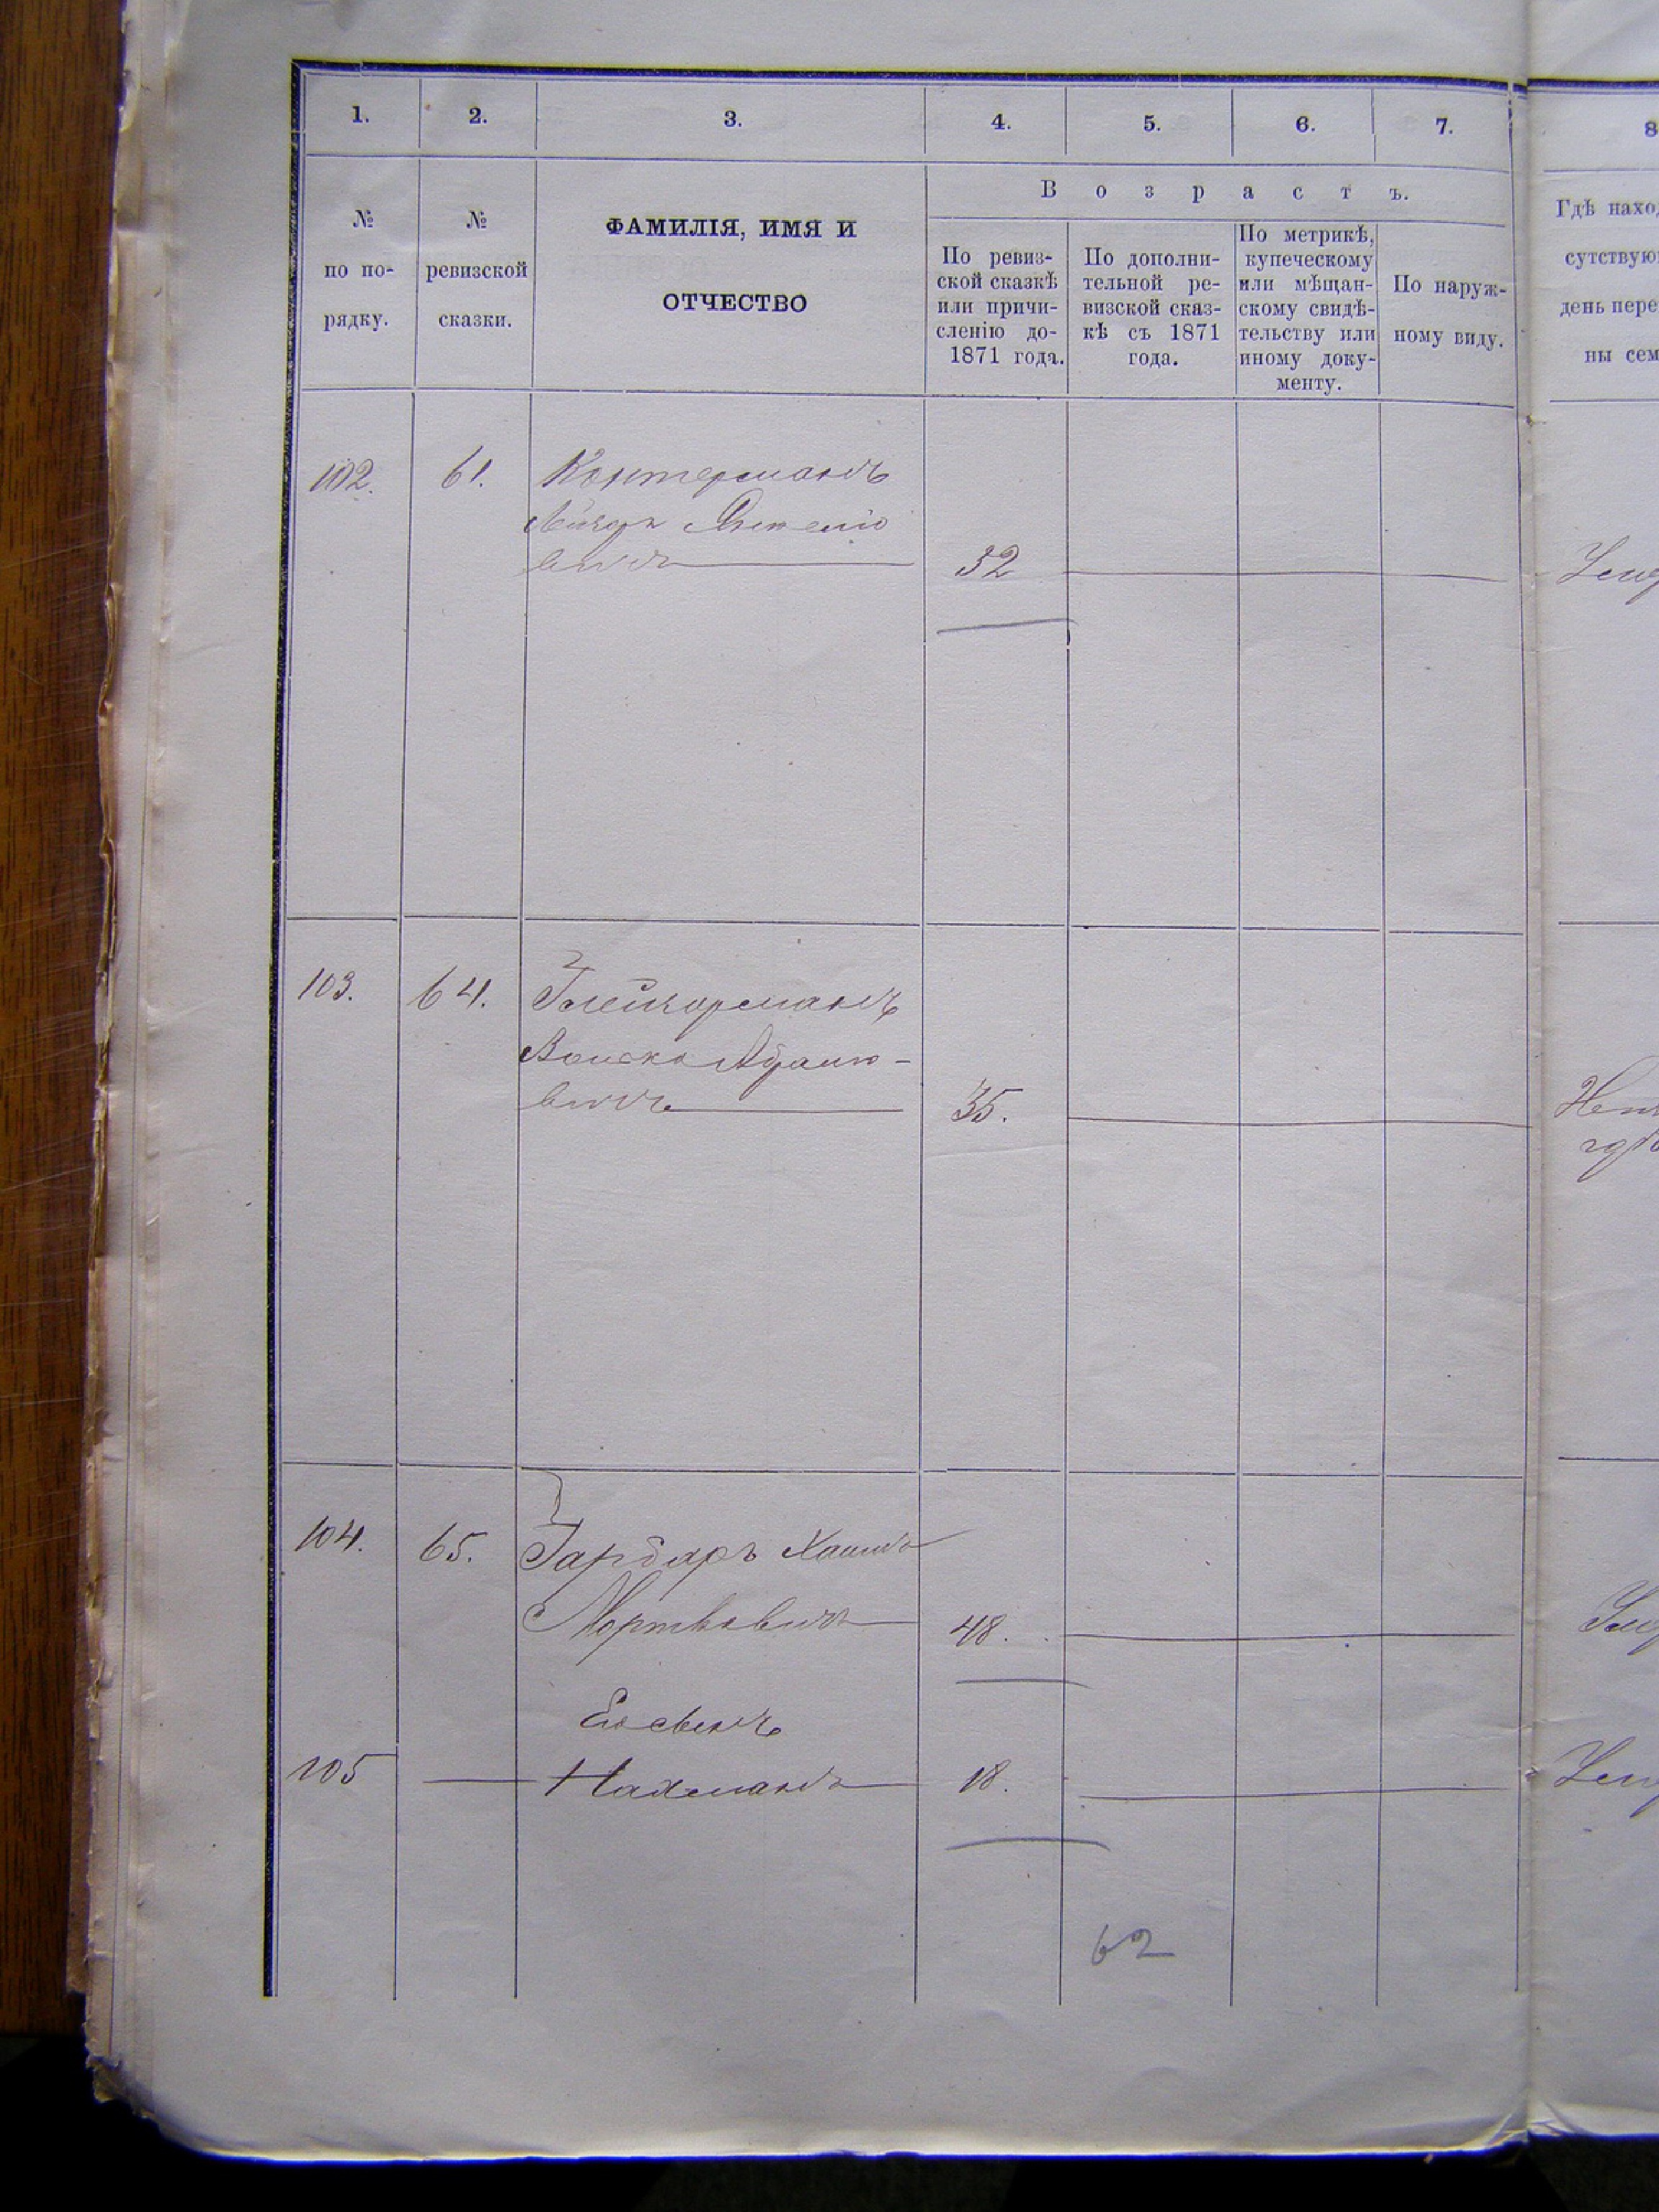 1.
2.
3.
4.
5.
6.
7.
8
№
по по-
рядку.
№
ревизской
сказки.
ФАМИЛІЯ, ИМЯ И
ОТЧЕСТВО
Возрастъ.
По ревиз-
ской сказкѣ
или причи-
сленію до-
1871 года.
По дополни-
тельной ре-
визской сказ-
кѣ съ 1871
года.
По метрикѣ,
купеческому
или мѣщан-
скому свидѣ-
тельству или
иному доку-
менту.
По наруж-
ному виду.
Гдѣ нахо
сутствую
день пере
ны сем
102.
61.
Контерманъ
вичъ
32
103.
64.
Глейзерманъ
вичъ
35.
гдѣ
104.
65.
Гарбаръ Хаимъ
Мортковичъ
48.
Его сынъ
105
Нахманъ
18.
62